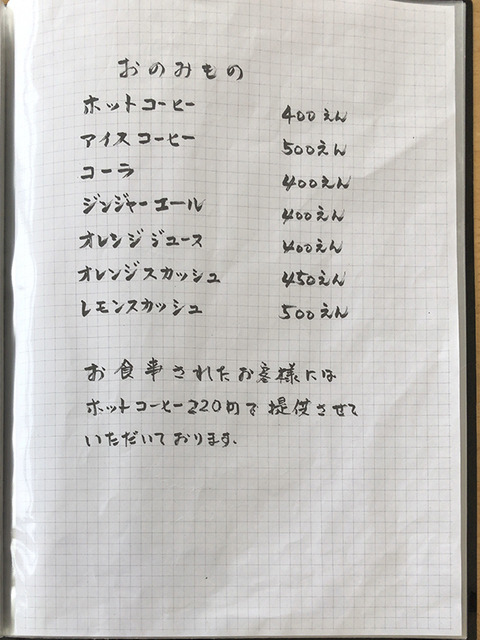 おのみもの
ホットコーヒー 400えん
アイスコーヒー 500えん
コーラ 400えん
ジンジャーエール 400えん
オレンジジュース 400えん
オレンジスカッシュ 450えん
レモンスカッシュ 500えん
お食事されたお客様には
ホットコーヒー220円で提供させて
いただいております。